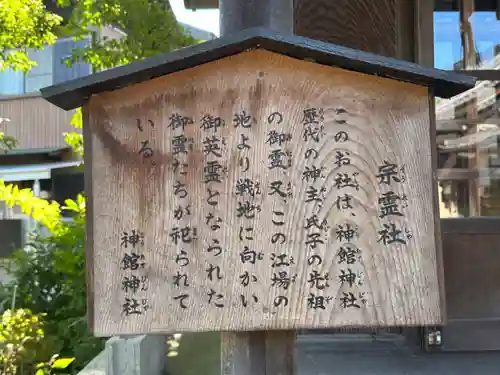 宗霊社
このお社は、神館神社
歴代の神主、氏子の先祖
の御霊、又、この江場の
地より戦地に向かい
御英霊となられた
御霊たちが祀られて
いる。
神館神社